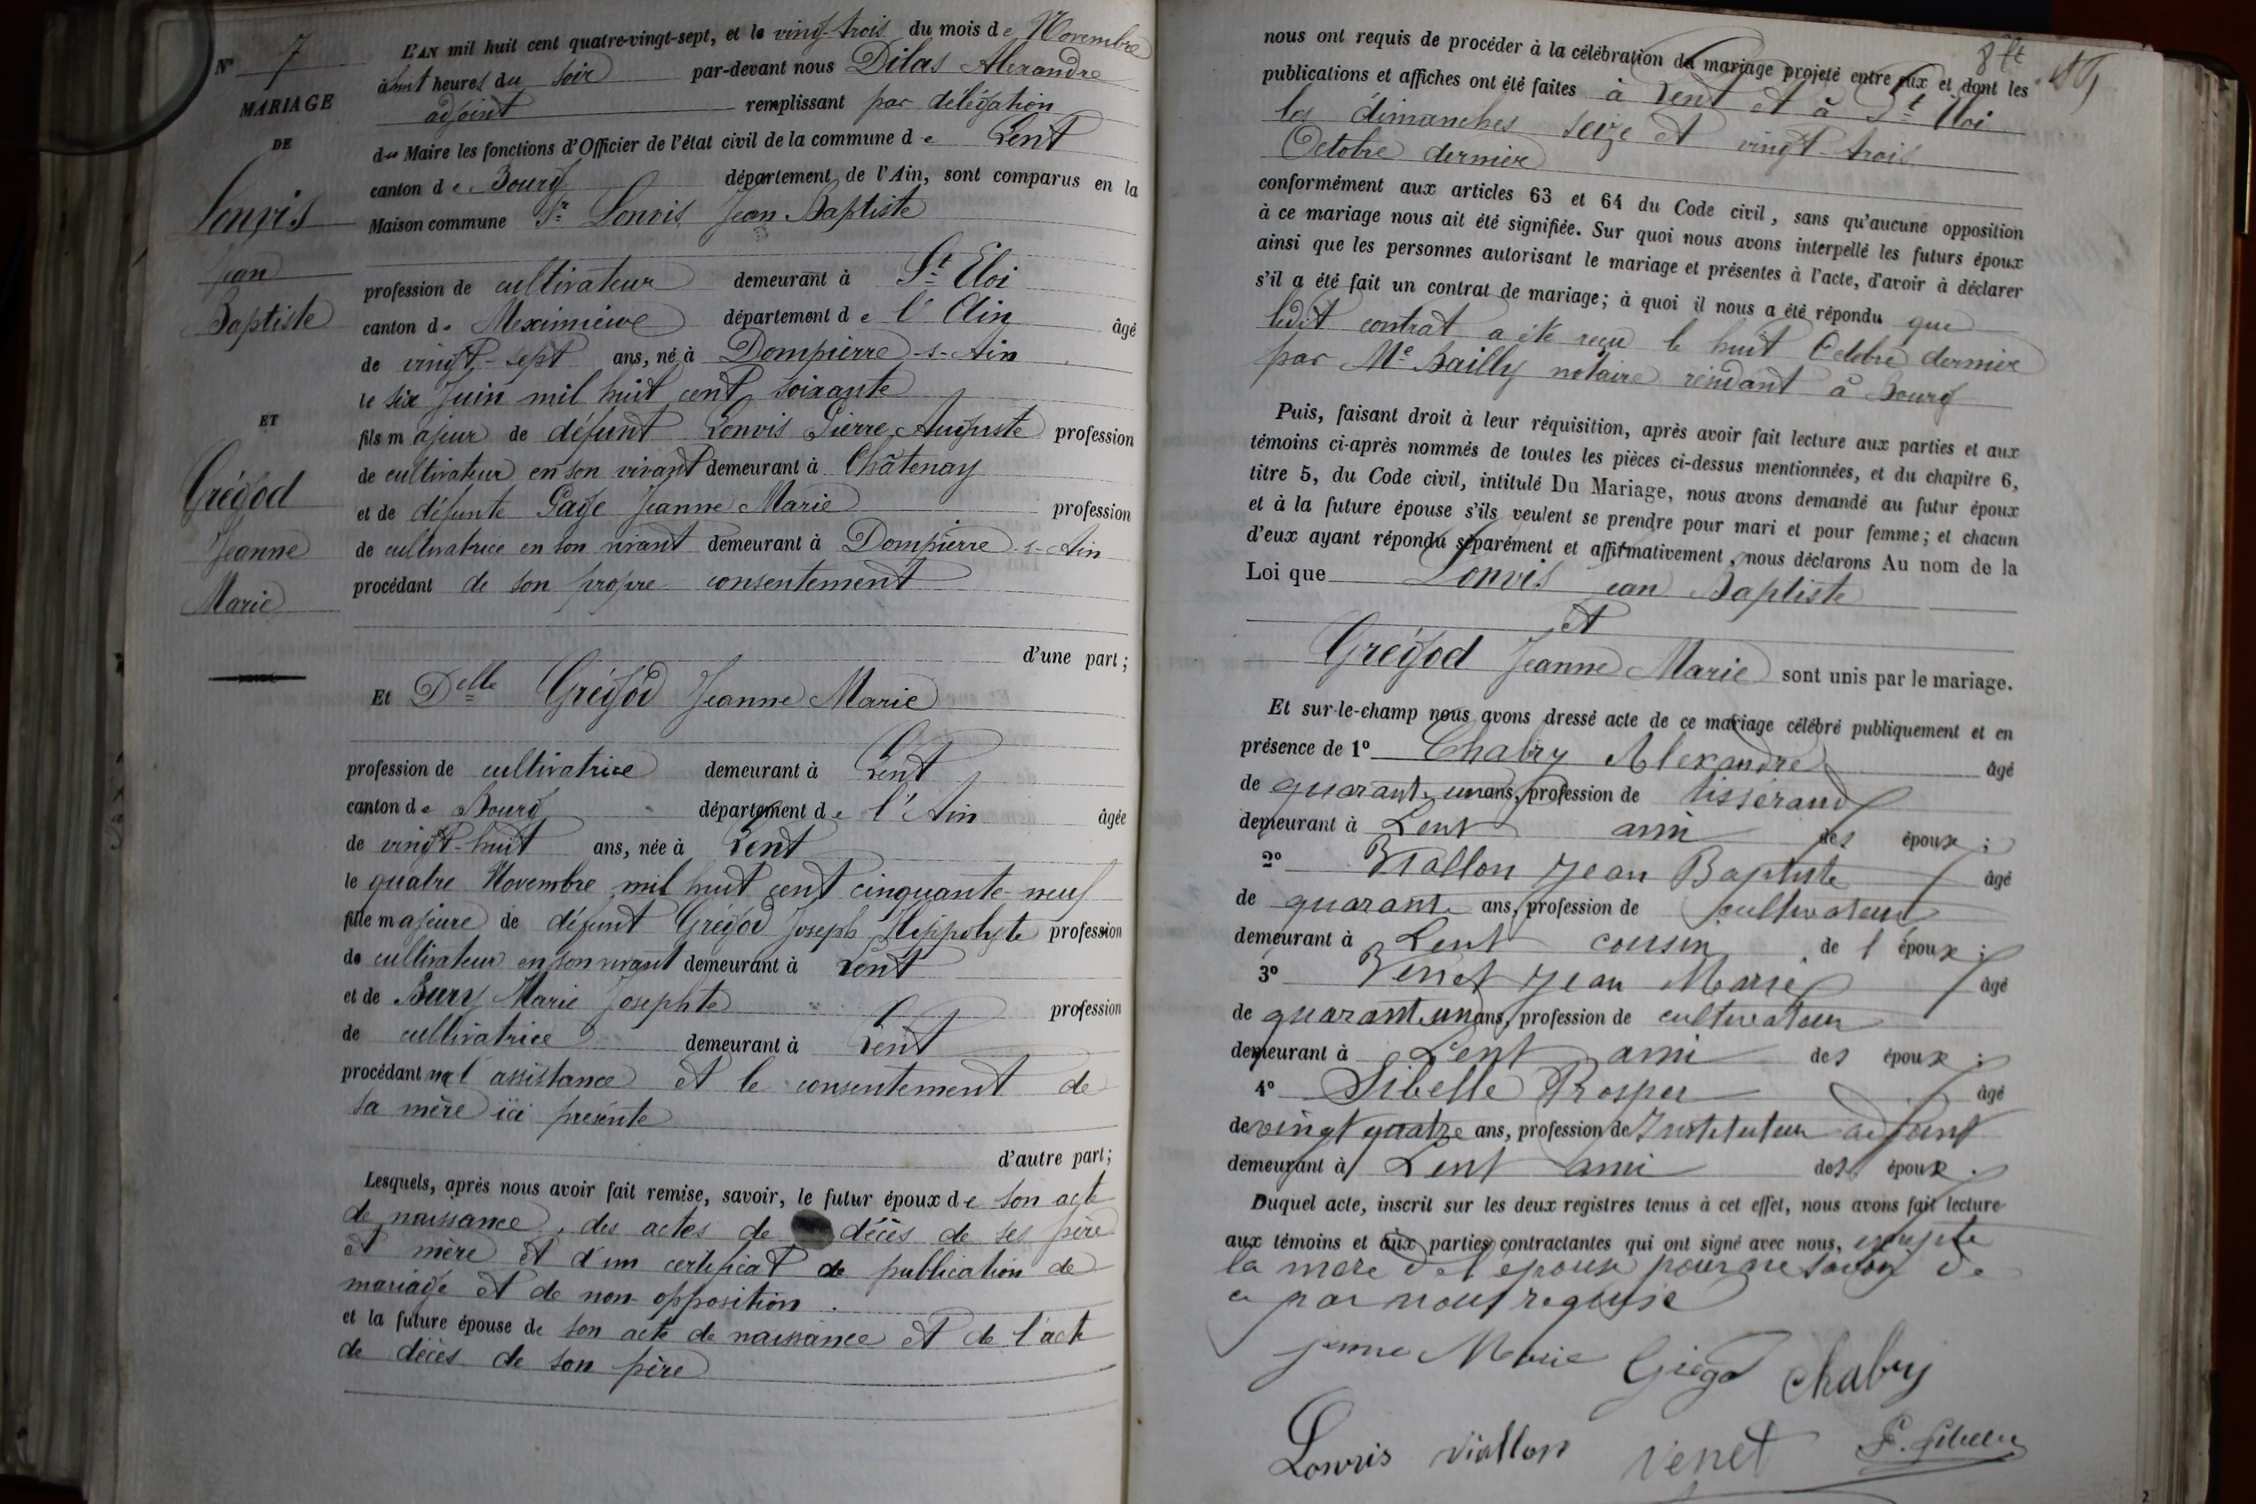 N° 7
MARIAGE
DE
Lonvis
Jean
Baptiste
ET
Grégod
Jeanne
Marie
L'AN mil huit cent quatre-vingt-sept, et le vingt-trois du mois de Novembre
à huit heures du soir par-devant nous Dilas Alexandre
adjoint remplissant par délégation
du Maire les fonctions d'Officier de l'état civil de la commune de Lent
canton de Bourg département de l'Ain, sont comparus en la
Maison commune Sr Lonvis Jean Baptiste
profession de cultivateur demeurant à St Eloi
canton de Meximieux département de l'Ain âgé
de vingt-sept ans, né à Dompierre-s-Ain
le six Juin mil huit cent soixante
fils majeur de défunt Lonvis Pierre Auguste profession
de cultivateur en son vivant demeurant à Châtenay
et de défunte Page Jeanne Marie profession
de cultivatrice en son vivant demeurant à Dompierre-s-Ain
procédant de son propre consentement
d'une part;
Et Delle Grégod Jeanne Marie
profession de cultivatrice demeurant à Lent
canton de Bourg département de l'Ain âgée
de vingt-huit ans, née à Lent
le quatre Novembre mil huit cent cinquante-neuf
fille majeure de défunt Grégod Joseph Hippolyte profession
de cultivateur en son vivant demeurant à Lent
et de Bury Marie Josephte profession
de cultivatrice demeurant à Lent
procédant l'assistance et le consentement de
sa mère ici présente
d'autre part;
Lesquels, après nous avoir fait remise, savoir, le futur époux de son acte
de naissance, des actes de décès de ses père
et mère et d'un certificat de publication de
mariage et de non-opposition.
et la future épouse de son acte de naissance et de l'acte
de décès de son père
nous ont requis de procéder à la célébration du mariage projeté entre eux et dont les
publications et affiches ont été faites à Lent et à St Eloi
les dimanches seize et vingt-trois
Octobre dernier
conformément aux articles 63 et 64 du Code civil, sans qu'aucune opposition
à ce mariage nous ait été signifiée. Sur quoi nous avons interpellé les futurs époux
ainsi que les personnes autorisant le mariage et présentes à l'acte, d'avoir à déclarer
s'il a été fait un contrat de mariage; à quoi il nous a été répondu que
ledit contrat a été reçu le huit Octobre dernier
par Me Bailly notaire résidant à Bourg
Puis, faisant droit à leur réquisition, après avoir fait lecture aux parties et aux
témoins ci-après nommés de toutes les pièces ci-dessus mentionnées, et du chapitre 6,
titre 5, du Code civil, intitulé Du Mariage, nous avons demandé au futur époux
et à la future épouse s'ils veulent se prendre pour mari et pour femme; et chacun
d'eux ayant répondu séparément et affirmativement, nous déclarons Au nom de la
Loi que Lonvis Jean Baptiste
et
Grégod Jeanne Marie sont unis par le mariage.
Et sur-le-champ nous avons dressé acte de ce mariage célébré publiquement et en
présence de 1° Chabry Alexandre âgé
de quarante un ans, profession de tisserand
demeurant à Lent ami des époux;
2° Viallon Jean Baptiste âgé
de quarante ans, profession de cultivateur
demeurant à Lent cousin de l'époux;
3° Venet Jean Marie âgé
de quarante un ans, profession de cultivateur
demeurant à Lent ami des époux;
4° Sibelle Prosper âgé
de vingt quatre ans, profession de Instituteur adjoint
demeurant à Lent ami des époux.
Duquel acte, inscrit sur les deux registres tenus à cet effet, nous avons fait lecture
aux témoins et aux parties contractantes qui ont signé avec nous, excepté
la mère de l'épouse pour ne savoir de
ce par nous requise
Jenne Marie Grégod Chabry
Lonvis Viallon Venet P. Sibelle